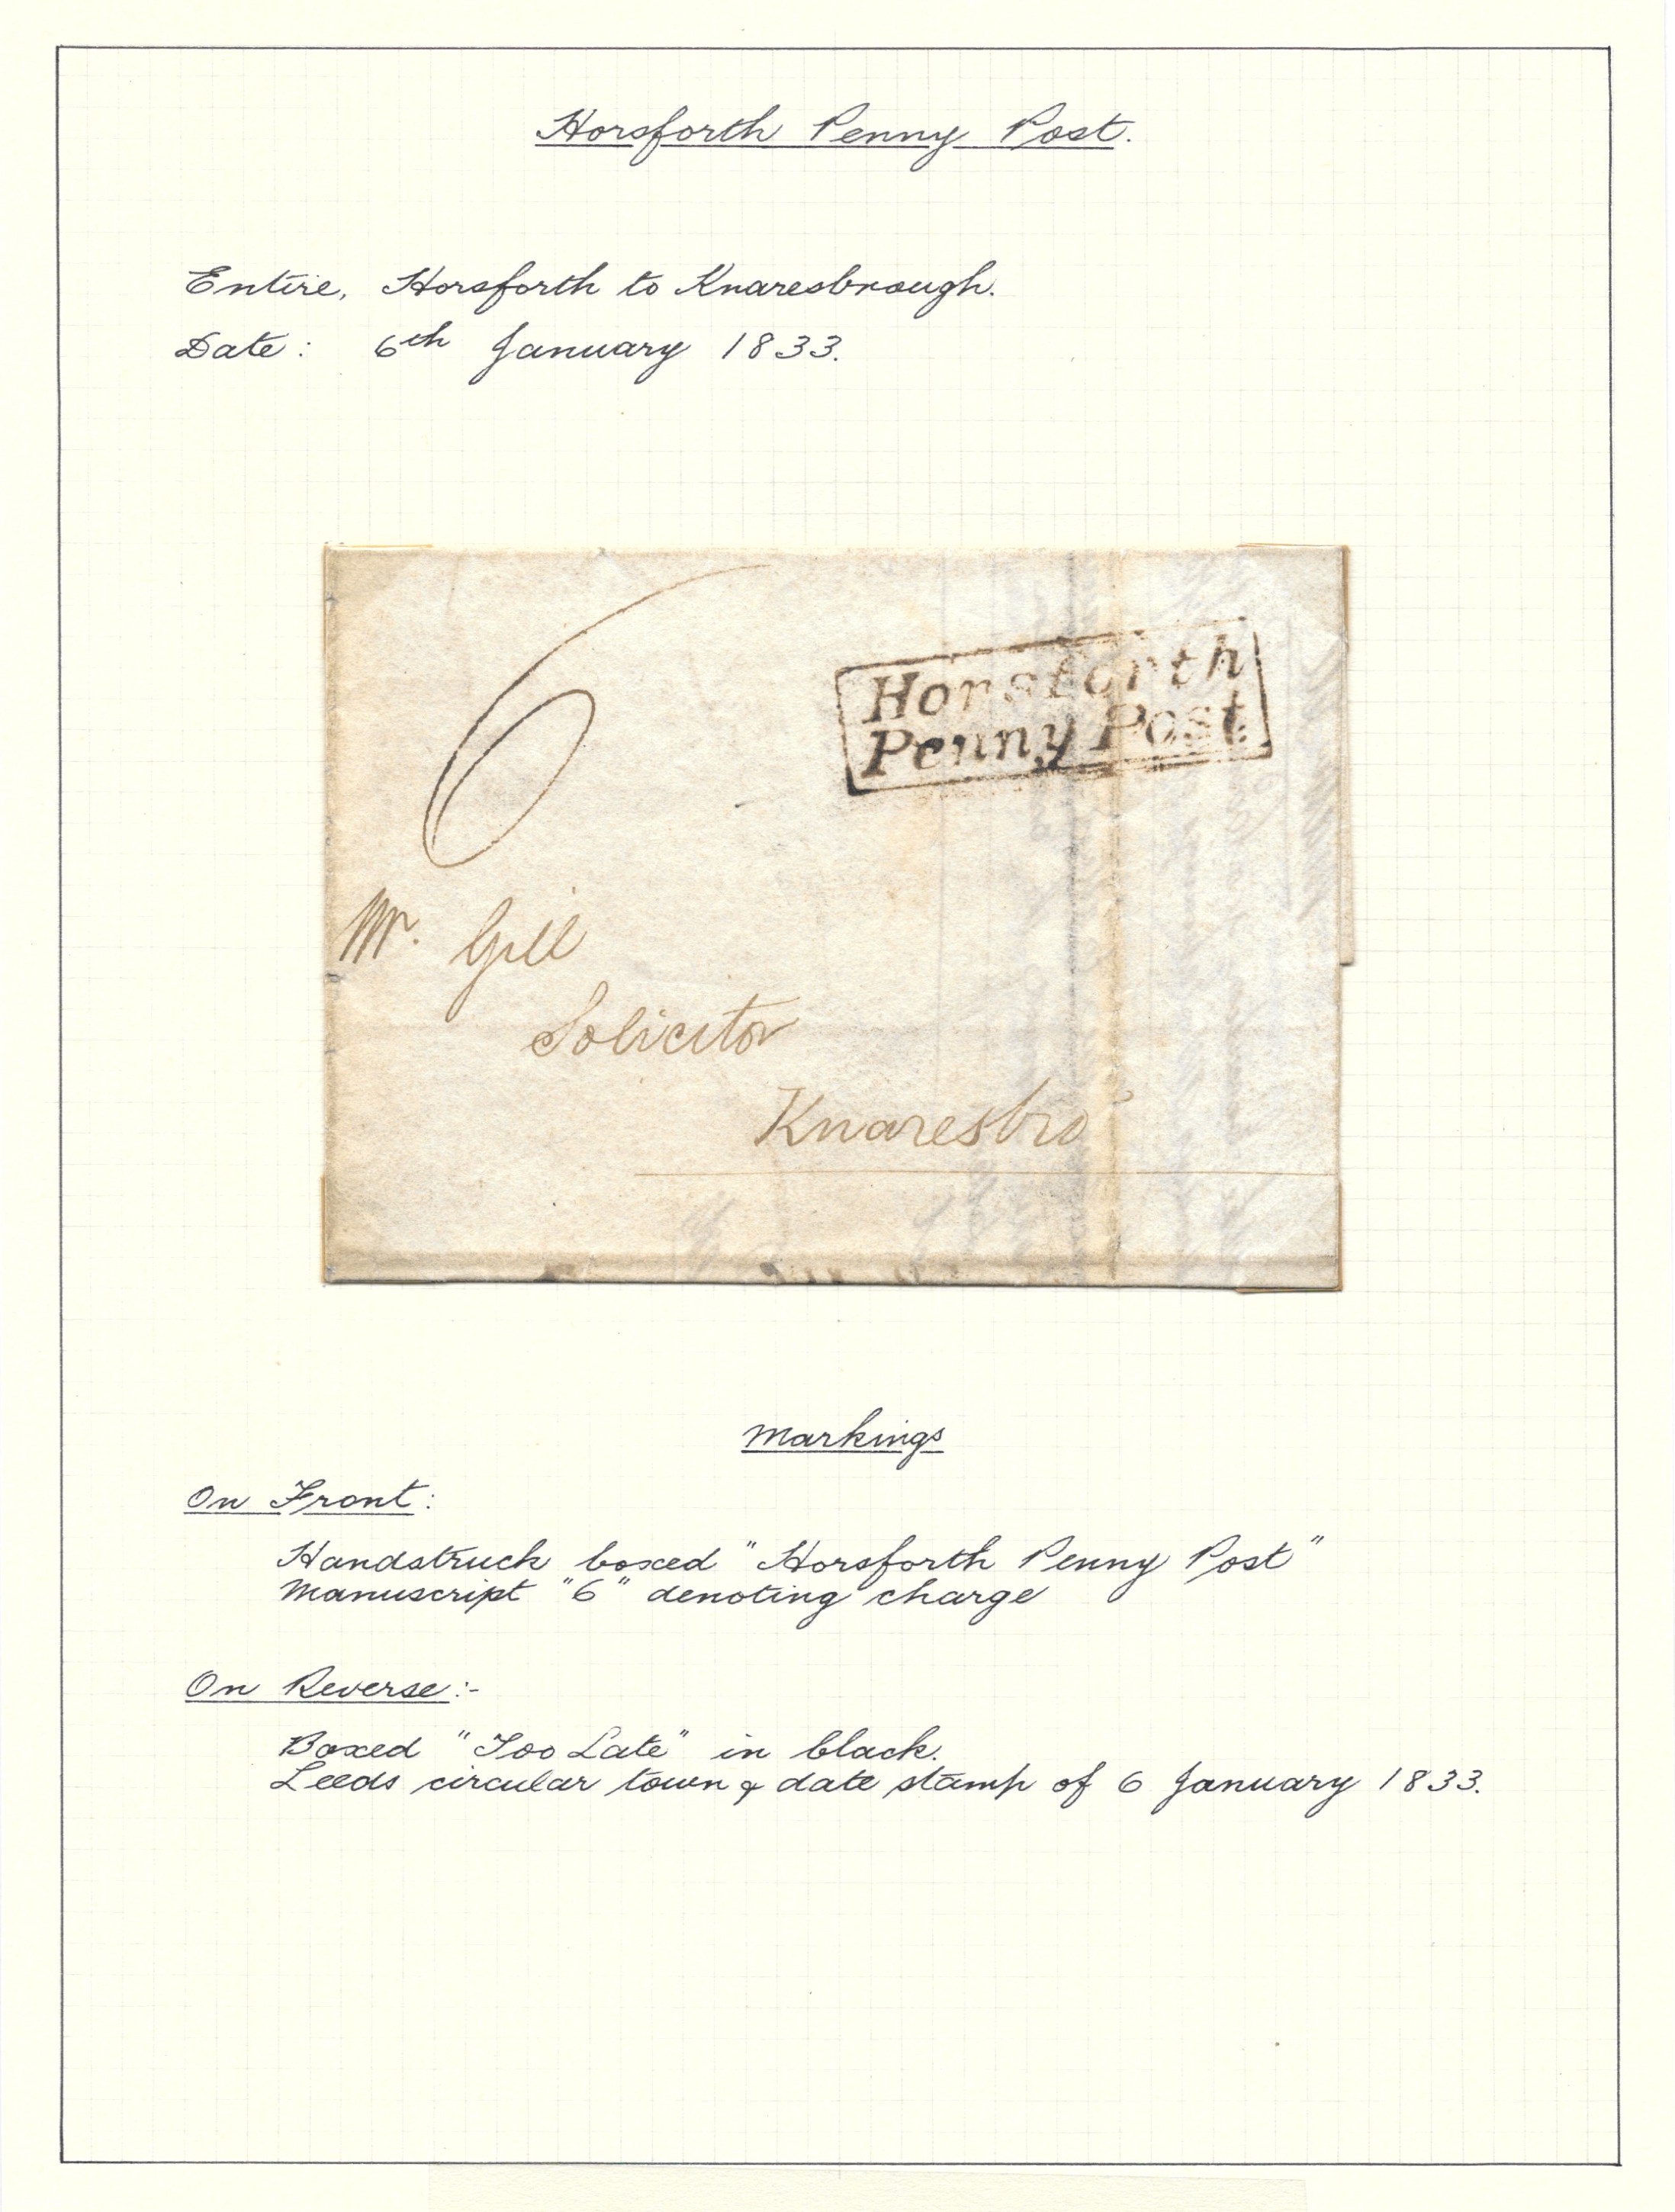 Horsforth Penny Post.
Entire, Horsforth to Knaresbrough.
Date: 6th January 1833.
6
Horsforth
Penny Post
Mr. Gill
Solicitor
Knaresbro'
Markings
On Front:
Handstruck boxed "Horsforth Penny Post"
Manuscript "6" denoting charge
On Reverse:-
Boxed "Too Late" in black.
Leeds circular town & date stamp of 6 January 1833.